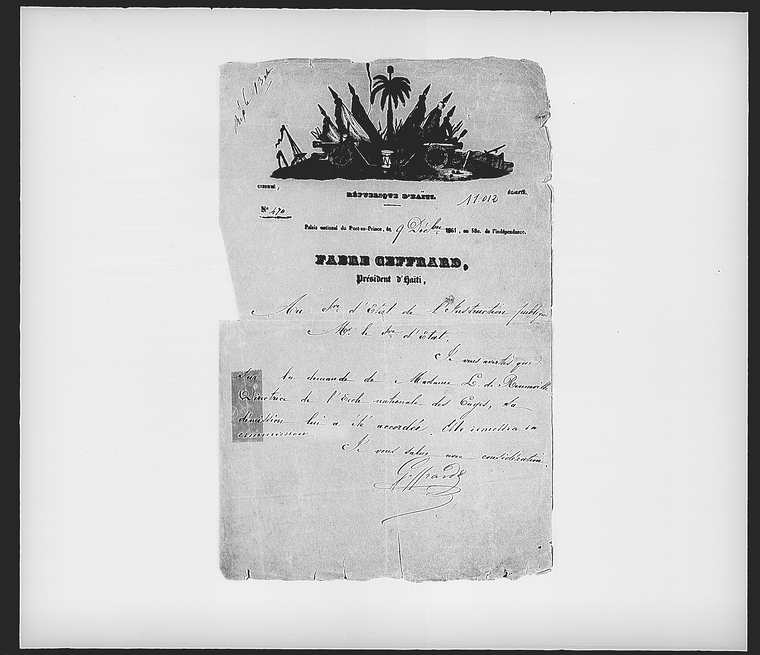 LIBERTÉ,
RÉPUBLIQUE D'HAITI.
ÉGALITÉ.
11012
N° 470
Palais national du Port-au-Prince, le 9 Décbre 1861, an 58e. de l'indépendance.
FABRE GEFFRARD,
Président d'Haïti,
Au Sre d'Etat de l'Instruction publique
Mr. le Sre d'Etat.
Je vous avertis que
sur la demande de Madame L. de
Directrice de l'Ecole nationale des Cayes, sa
démission lui a été accordée. Elle remettra sa
commission.
Je vous salue avec considération.
Geffrard